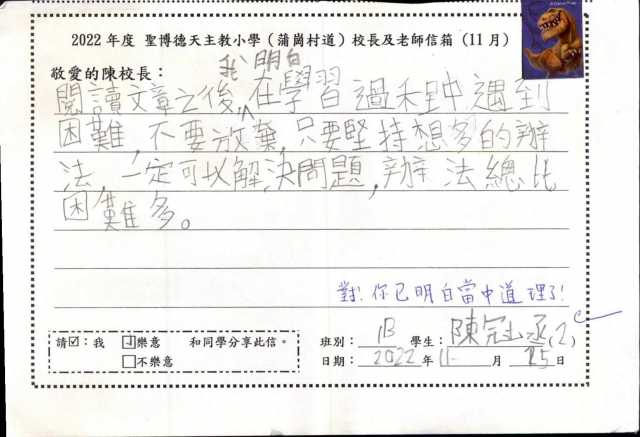 2022 年度 聖博德天主教小學（蒲崗村道）校長及老師信箱（11 月）
敬愛的陳校長：
我明白
閱讀文章之後,在學習過程中遇到
困難,不要放棄,只要堅持想多的辦
法,一定可以解決問題,辦法總比
困難多。
對!你已明白當中道理了!
請☑：我 ☑樂意 和同學分享此信。
□不樂意
班別： 1B 學生： 陳冠丞(2)
日期： 2022 年 11 月 25 日